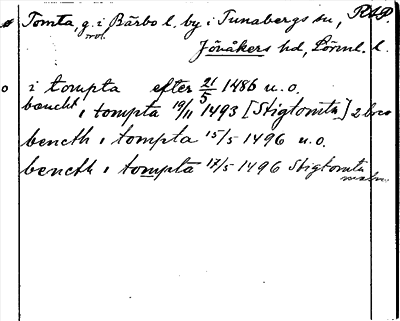 Tomta, g. i Bärbo l. by i Tunabergs sn, RAP
Jönåkers hd, Sörml. l.
i tompta efter 21/5 1486 u. o.
bænckt i tompta 19/11 1493 [Stigtomta] 2 brev
bencth i tompta 15/5 1496 u. o.
bencth i tompta 17/5 1496 Stigtomta